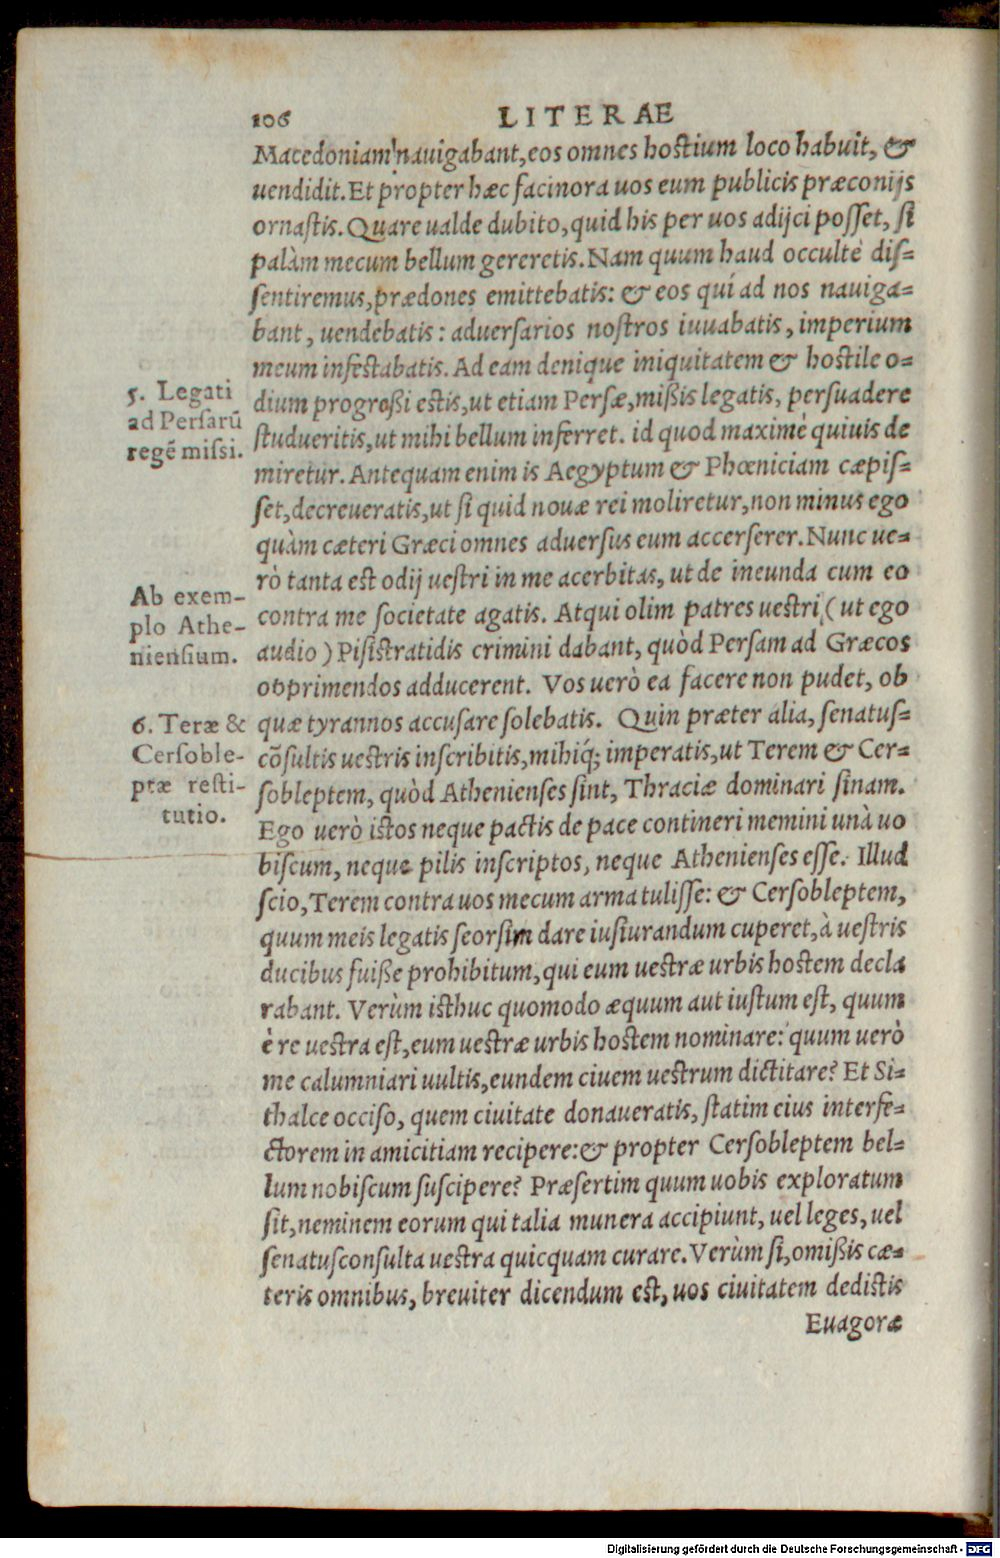 106 LITERAE
Macedoniam nauigabant, eos omnes hostium loco habuit, &
uendidit. Et propter hæc facinora uos eum publicis præconijs
ornastis. Quare ualde dubito, quid his per uos adijci posset, si
palàm mecum bellum gereretis. Nam quum haud occultè dis=
sentiremus, prædones emittebatis: & eos qui ad nos nauiga=
bant, uendebatis: aduersarios nostros iuuabatis, imperium
meum infestabatis. Ad eam denique iniquitatem & hostile o=
5. Legati
ad Persarū
regē missi.
dium progreßi estis, ut etiam Persæ, mißis legatis, persuadere
studueritis, ut mihi bellum inferret. id quod maximè quiuis de
miretur. Antequam enim is Aegyptum & Phœniciam cæpis=
set, decreueratis, ut si quid nouæ rei moliretur, non minus ego
quàm cæteri Græci omnes aduersus eum accerserer. Nunc ue=
rò tanta est odij uestri in me acerbitas, ut de ineunda cum eo
Ab exem-
plo Athe-
niensium.
contra me societate agatis. Atqui olim patres uestri, (ut ego
audio) Pisistratidis crimini dabant, quòd Persam ad Græcos
opprimendos adducerent. Vos uerò ea facere non pudet, ob
6. Teræ &
Cersoble-
ptæ resti-
tutio.
quæ tyrannos accusare solebatis. Quin præter alia, senatus=
cōsultis uestris inscribitis, mihiq́; imperatis, ut Terem & Cer=
sobleptem, quòd Athenienses sint, Thraciæ dominari sinam.
Ego uerò istos neque pactis de pace contineri memini unà uo
biscum, neque pilis inscriptos, neque Athenienses esse. Illud
scio, Terem contra uos mecum arma tulisse: & Cersobleptem,
quum meis legatis seorsim dare iusiurandum cuperet, à uestris
ducibus fuiße prohibitum, qui eum uestræ urbis hostem decla
rabant. Verùm isthuc quomodo æquum aut iustum est, quum
è re uestra est, eum uestræ urbis hostem nominare: quum uerò
me calumniari uultis, eundem ciuem uestrum dictitare? Et Si=
thalce occiso, quem ciuitate donaueratis, statim eius interfe=
ctorem in amicitiam recipere: & propter Cersobleptem bel=
lum nobiscum suscipere? Præsertim quum uobis exploratum
sit, neminem eorum qui talia munera accipiunt, uel leges, uel
senatusconsulta uestra quicquam curare. Verùm si, omißis cæ=
teris omnibus, breuiter dicendum est, uos ciuitatem dedistis
Euagoræ
Digitalisierung gefördert durch die Deutsche Forschungsgemeinschaft - DFG